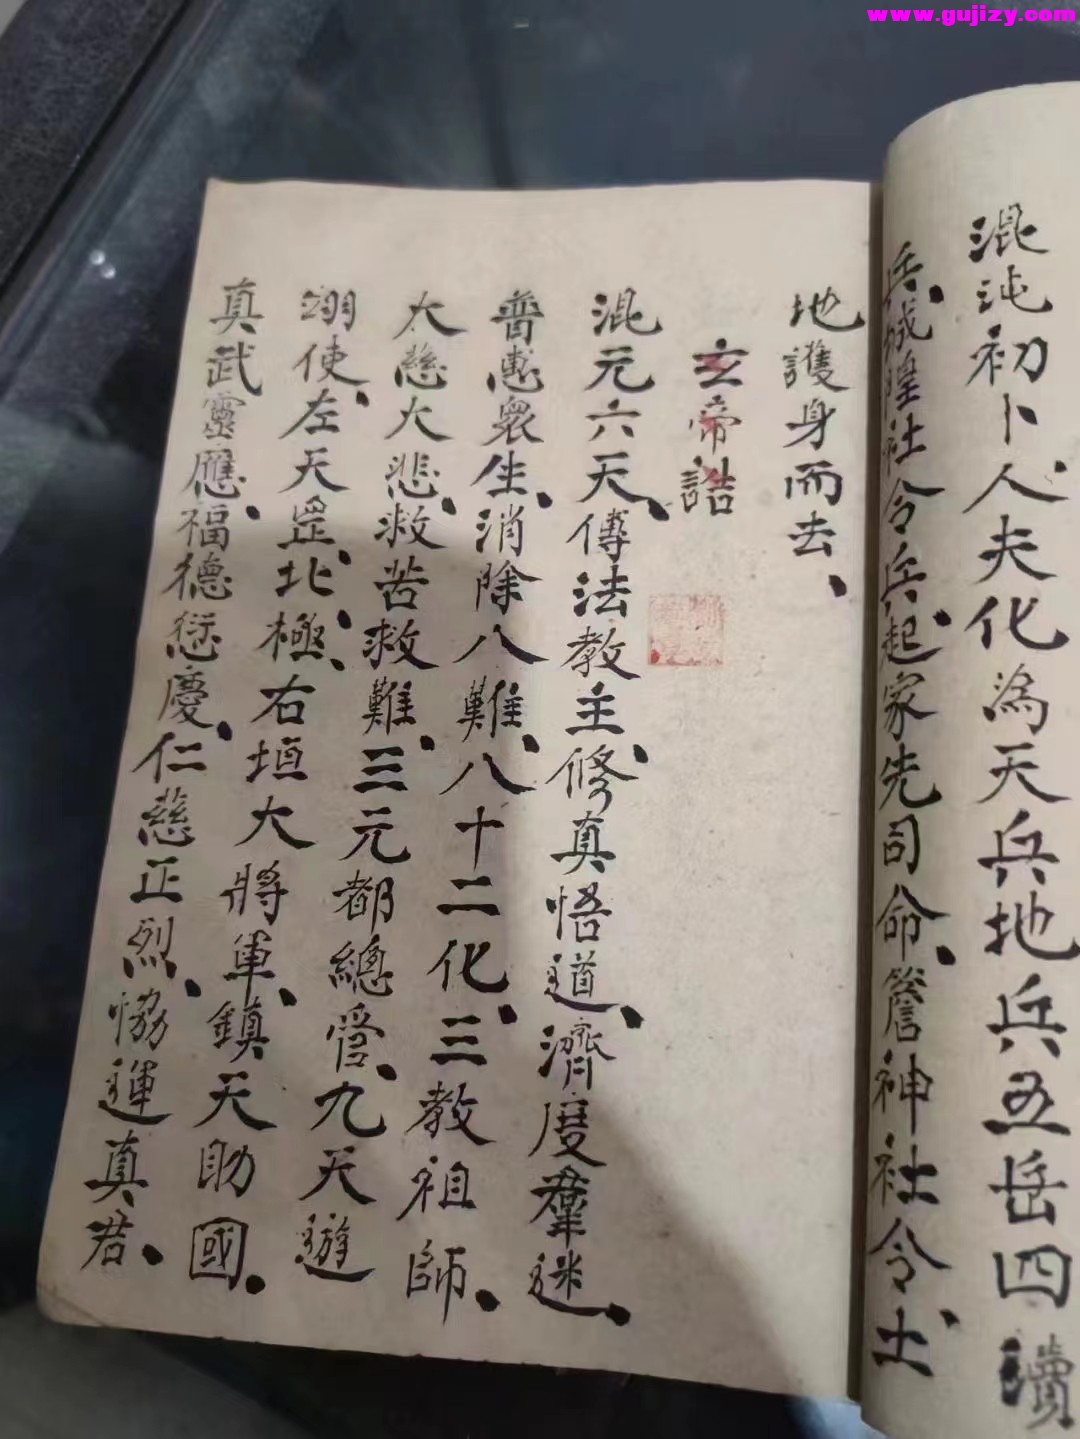 www.gujizy.com
混沌初卜人夫化為天兵地兵五岳四瀆
兵城隍社令兵起家先司命簷神社令土
地護身而去、
玄帝誥
混元六天、傳法教主、修真悟道、濟度羣迷、
普惠衆生、消除八難、八十二化、三教祖師、
大慈大悲、救苦救難、三元都總管、九天遊
翊使、左天罡、北極、右垣大將軍、鎮天助國、
真武靈應、福德衍慶、仁慈正烈、恊運真君、